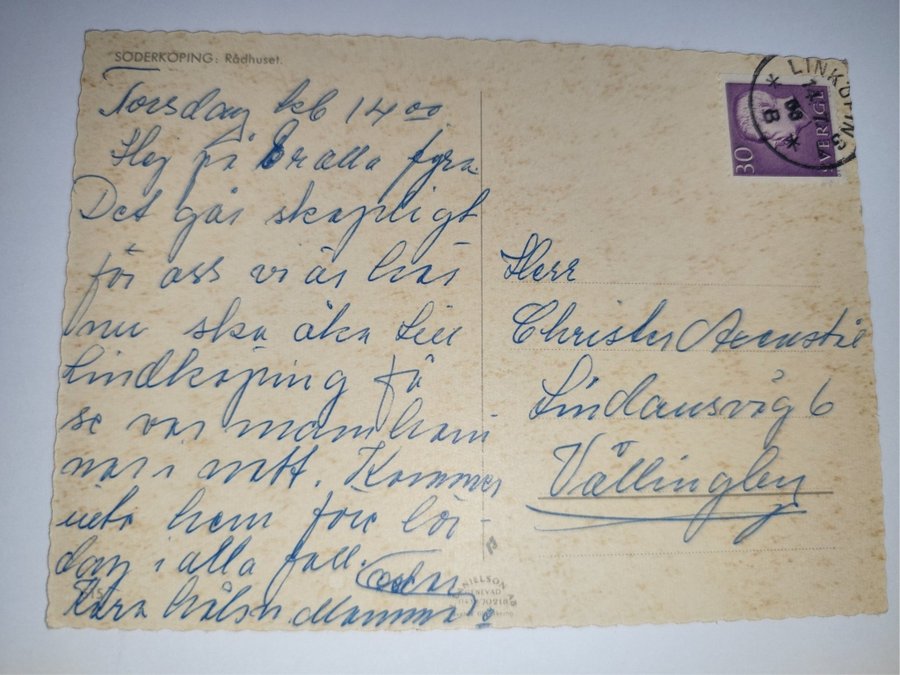 SÖDERKÖPING: Rådhuset.
Torsdag kl 14 00
Hej på Er alla fyra
Det går skapligt
för oss vi är här
nu ska åka till
Lindköping få
se var man hamnar
i natt. Kommer
inte hem före lör-
dag i alla fall.
Kära hälsn Mamma
LINKÖPING
30
SVERIGE
Herr
Christer
Lindausväg 6
Vällingby